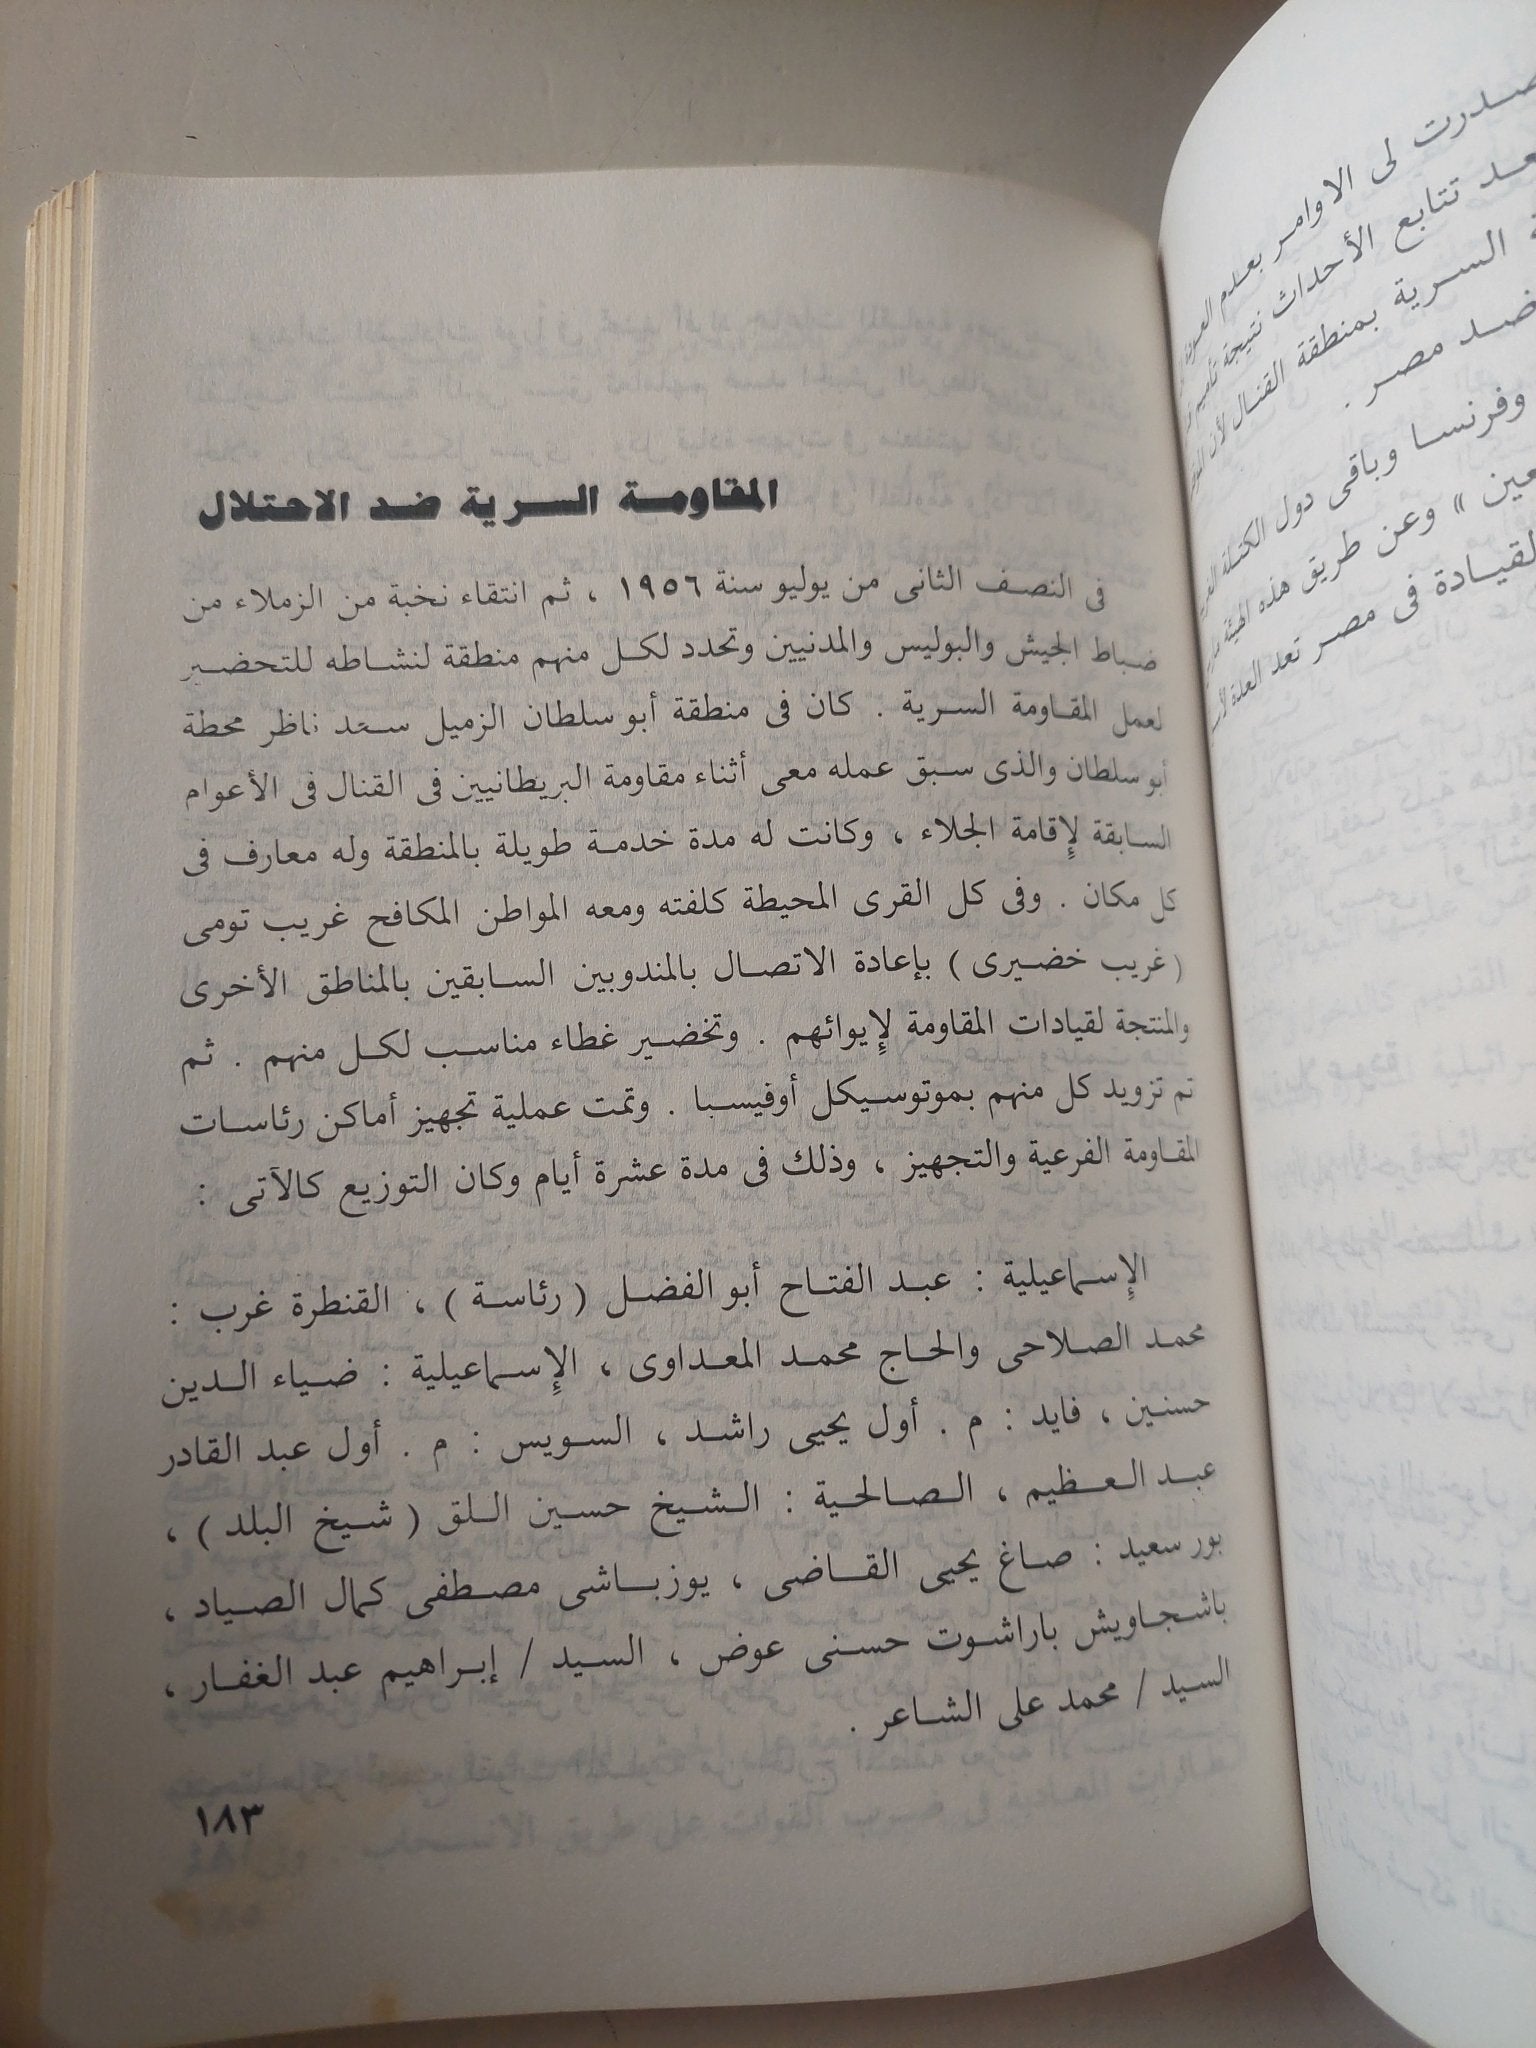 المقاومة السرية ضد الاحتلال
فى النصف الثانى من يوليو سنة ١٩٥٦ ، ثم انتقاء نخبة من الزملاء من
ضباط الجيش والبوليس والمدنيين وتحدد لكل منهم منطقة لنشاطه للتحضير
لعمل المقاومة السرية . كان فى منطقة أبو سلطان الزميل سعد ناظر محطة
أبو سلطان والذى سبق عمله معى أثناء مقاومة البريطانيين فى القنال فى الأعوام
السابقة لإقامة الجلاء ، وكانت له مدة خدمة طويلة بالمنطقة وله معارف فى
كل مكان . وفى كل القرى المحيطة كلفته ومعه المواطن المكافح غريب تومى
( غريب خضيرى ) بإعادة الاتصال بالمندوبين السابقين بالمناطق الأخرى
والمنتجة لقيادات المقاومة لإيوائهم . وتخضير غطاء مناسب لكل منهم . ثم
تم تزويد كل منهم بموتوسيكل أوفيسبا . وتمت عملية تجهيز أماكن رئاسات
المقاومة الفرعية والتجهيز ، وذلك فى مدة عشرة أيام وكان التوزيع كالآتى :
الإسماعيلية : عبد الفتاح أبو الفضل ( رئاسة ) ، القنطرة غرب :
محمد الصلاحى والحاج محمد المعداوى ، الإسماعيلية : ضياء الدين
حسنين ، فايد : م . أول يحيى راشد ، السويس : م . أول عبد القادر
عبد العظيم ، الصالحية : الشيخ حسين اللق ( شيخ البلد ) ،
بور سعيد : صاغ يحيى القاضى ، يوزباشى مصطفى كمال الصياد ،
باشجاويش باراشوت حسنى عوض ، السيد / إبراهيم عبد الغفار ،
السيد / محمد على الشاعر .
١٨٣
صدرت لى الاوامر بعدم
تتابع الأحداث نتيجة
السرية بمنطقة القنال لأن
ضد مصر .
وفرنسا وباقى دول الكتلة
» وعن طريق هذه الهيئة
القيادة فى مصر تعد العدة